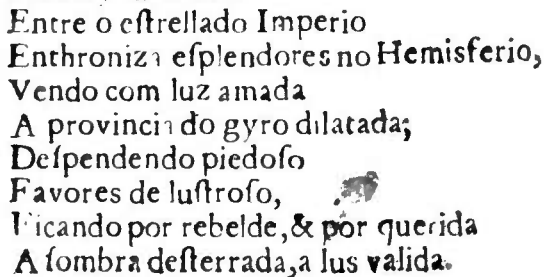 Entre o eſtrellado Imperio
Enthroniza eſplendores no Hemisferio,
Vendo com luz amada
A provincia do gyro dilatada;
Deſpendendo piedoſo
Favores de luſtroſo,
Ficando por rebelde, & por querida
A ſombra deſterrada, a lus valida.